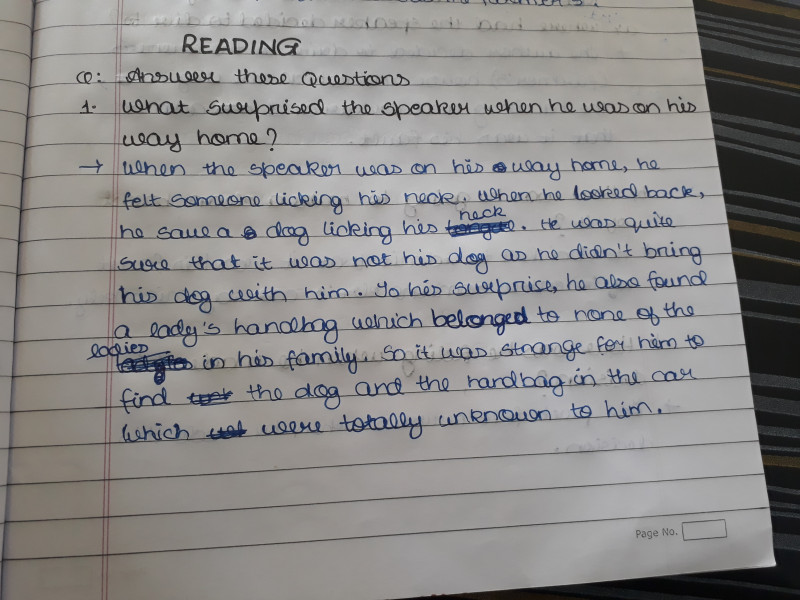 READING
Q: Answer these Questions
1. What surprised the speaker when he was on his
way home?
→ When the speaker was on his way home, he
felt someone licking his neck. When he looked back,
he saw a dog licking his neck. He was quite
sure that it was not his dog as he didn't bring
his dog with him. To his surprise, he also found
a lady's handbag which belonged to none of the
ladies in his family. So it was strange for him to
find the dog and the handbag in the car
which were totally unknown to him.
Page No.